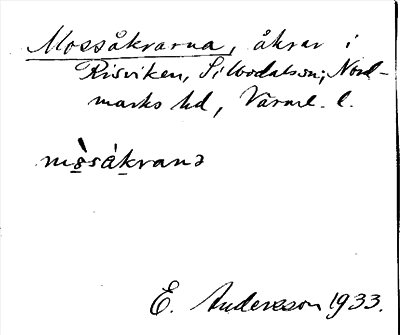 Mossåkrarna, åkrar i
Risviken, Silbodals sn; Nord-
marks hd, Värml. l.
mòsåkranə
E. Andersson 1933.